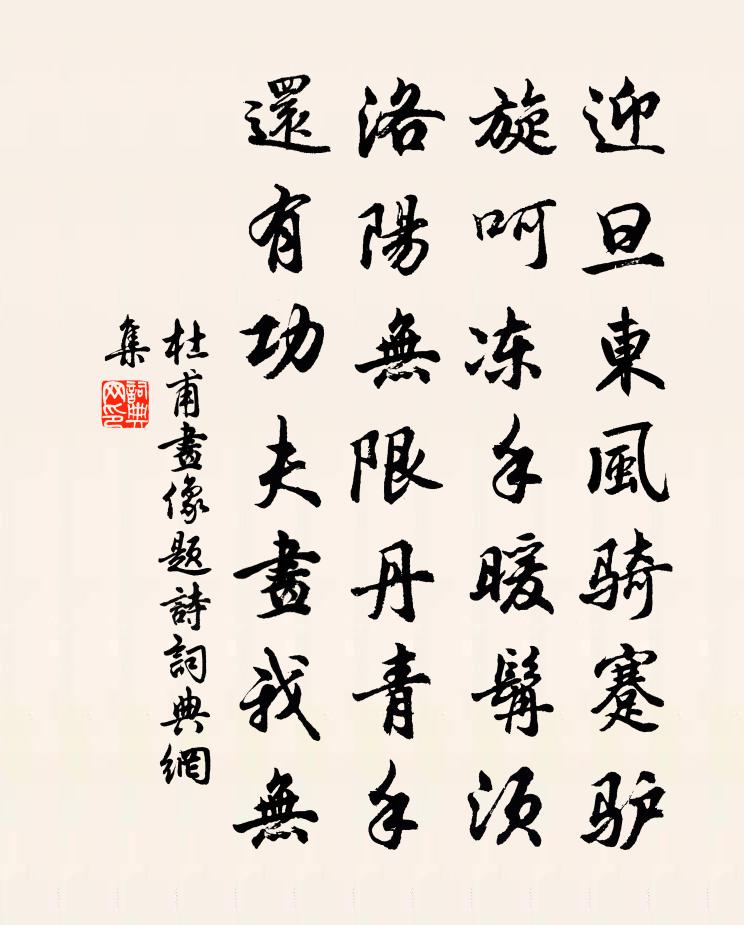 迎旦東風骑蹇驴
旋呵冻手暖髯须
洛陽無限丹青手
還有功夫畫我無
杜甫畫像题詩詞典網
集
詞典網印